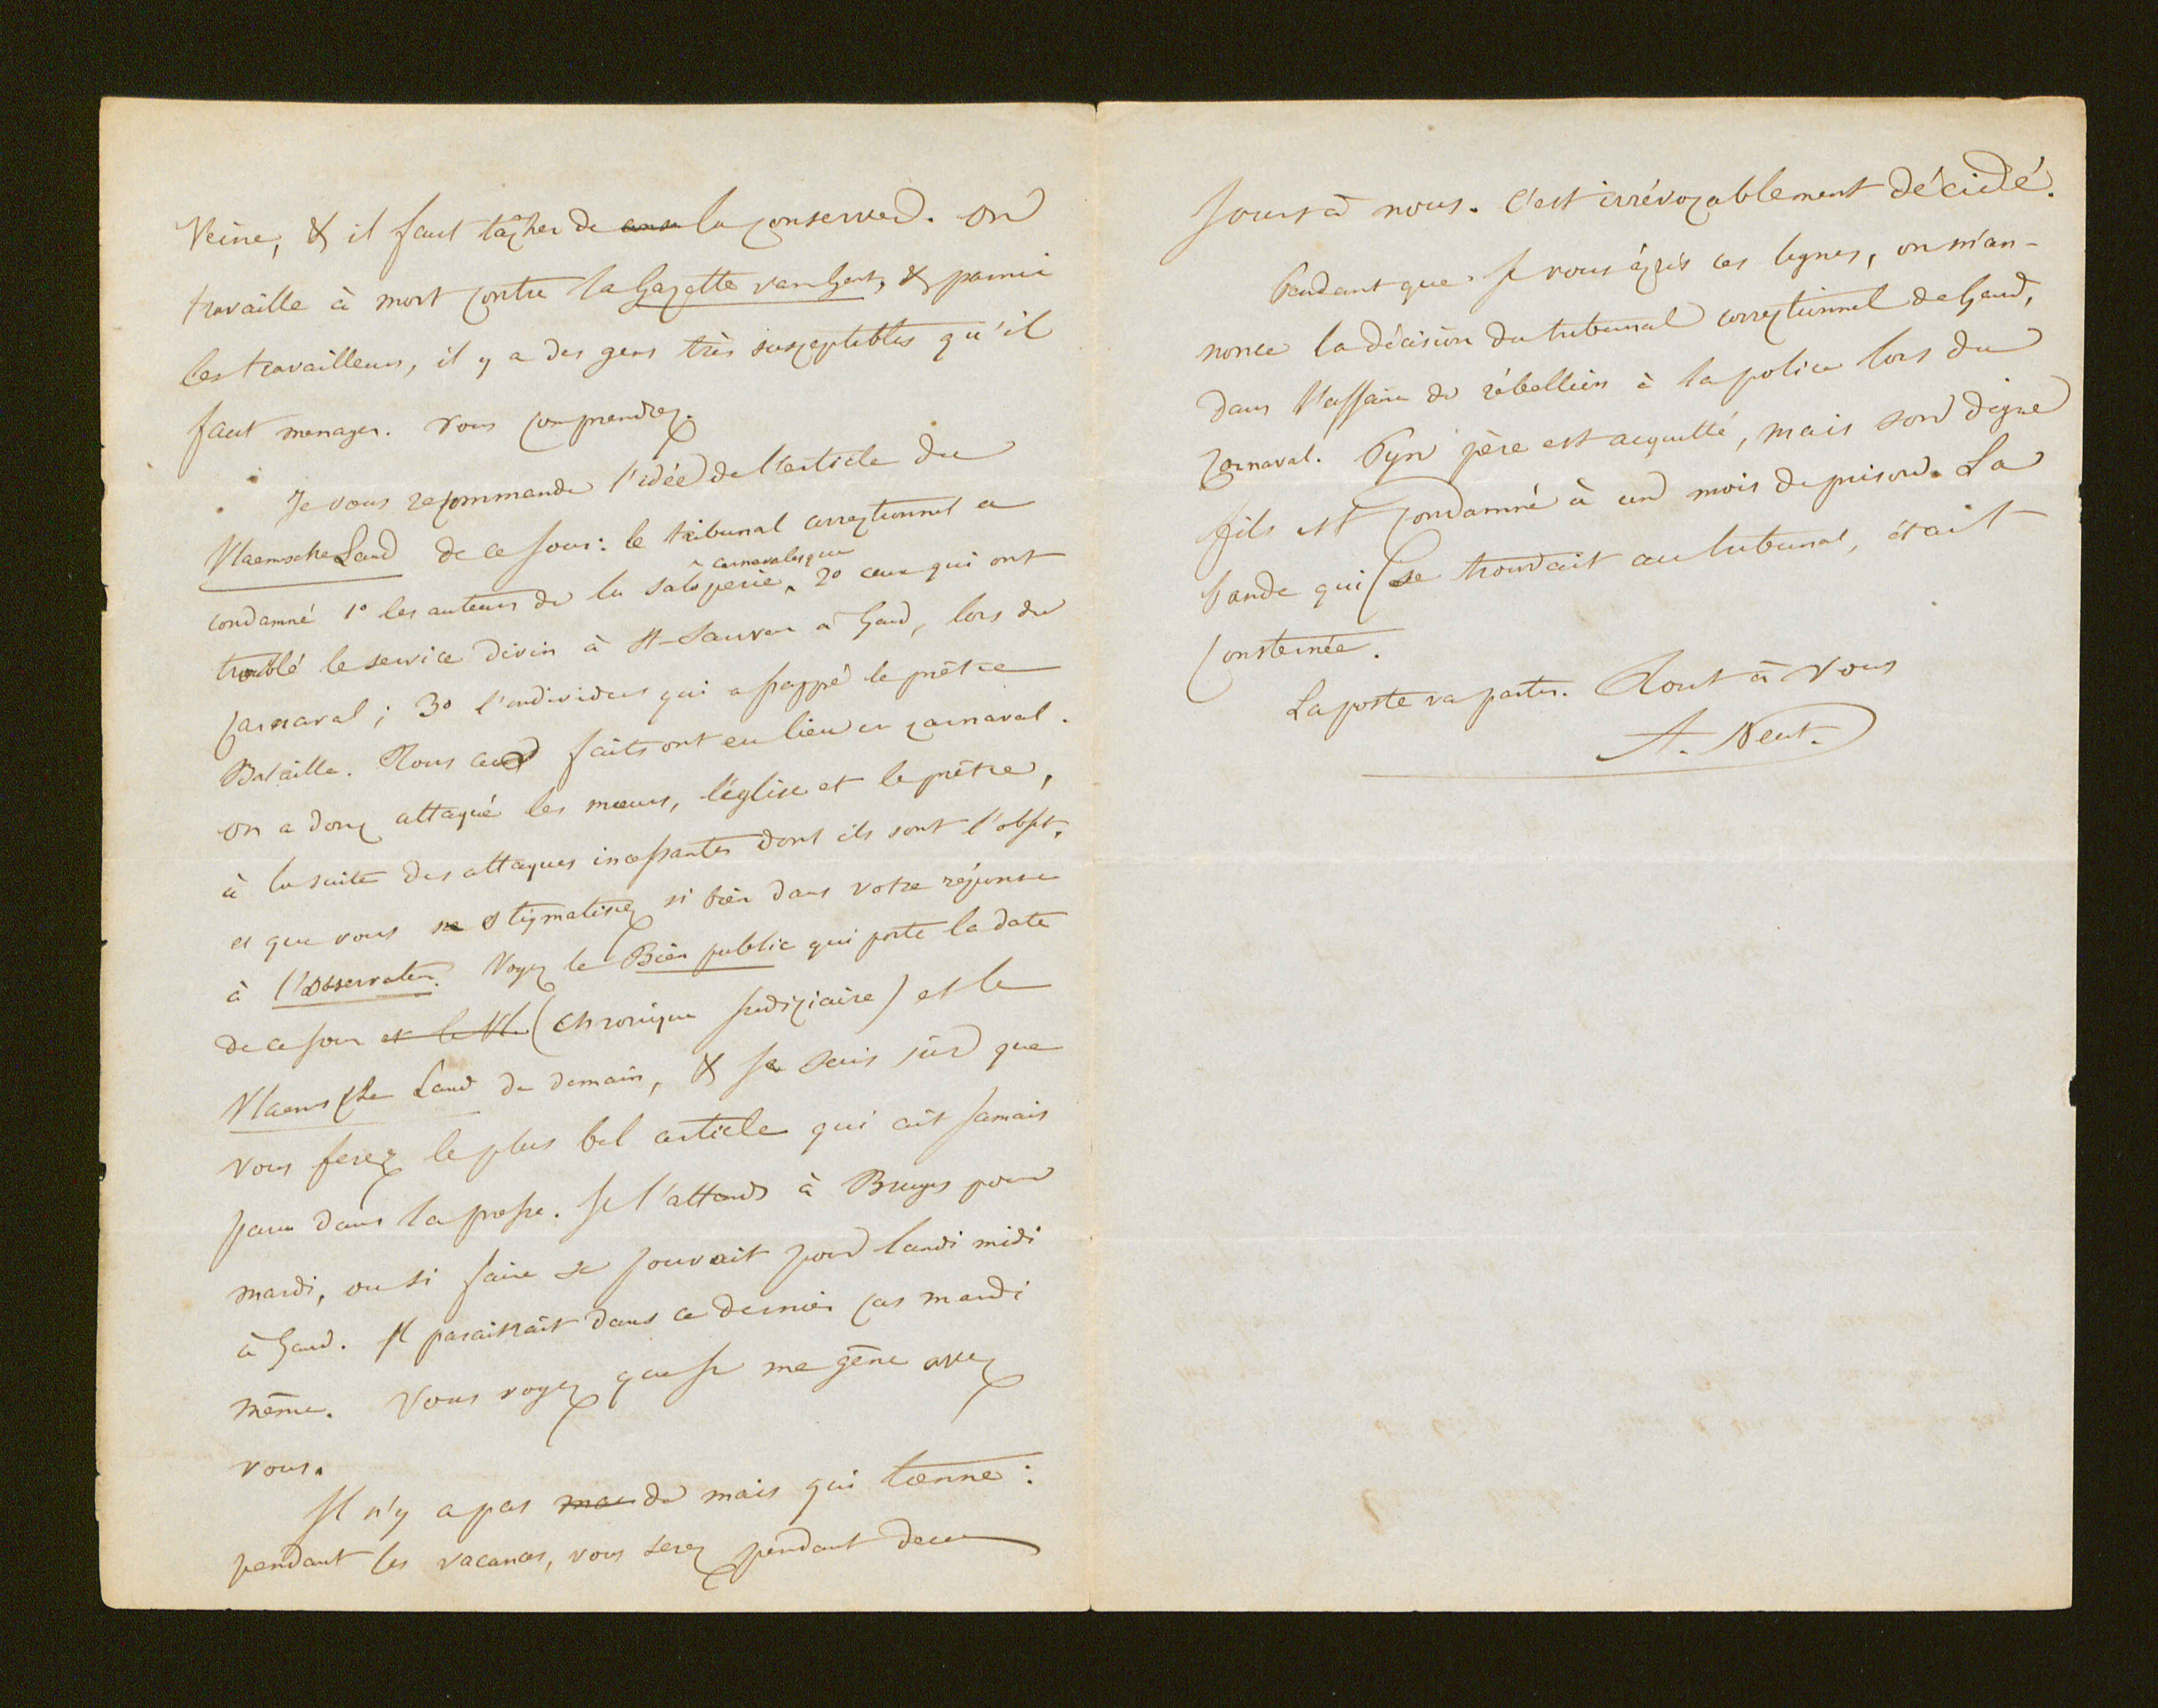 Veine, & il faut tâcher de la conserver. On
travaille à mort contre la Gazette van Gent, & parmi
les travailleurs, il y a des gens très susceptibles qu'il
faut menager. Vous comprendrez.
Je vous recommande l'idée de l'article du
Vlaemsche Land de ce jour: le tribunal correctionnel a
condamné 1º les auteurs de la saloperie carnavalesque, 2º ceux qui ont
troublé le service divin à St-Sauveur à Gand, lors du
carnaval; 3º l'individu qui a frappé le prêtre
Bataille. Tous ces faits ont eu lieu en carnaval.
On a donc attaqué les mœurs, l'église et le prêtre,
à la suite des attaques incessantes dont ils sont l'objet,
et que vous stigmatisez si bien dans votre réponse
à l'Observateur. Voyez le Bien public qui porte la date
de ce jour et le Vl (Chronique judiciaire) et le
Vlaemsche Land de demain, & je suis sûr que
vous ferez le plus bel article qui ait jamais
paru dans la presse. Je l'attends à Bruges pour
mardi, ou si faire se pouvait pour lundi midi
à Gand. Il paraitrait dans ce dernier cas mardi
même. Vous voyez que je me gêne avec
vous.
Il n'y a pas de mais qui tienne:
pendant les vacances, vous serez pendant deux
jours à nous. C'est irrévocablement décidé.
Pendant que je vous écris ces lignes, on m'an-
nonce la décision du tribunal correctionnel de Gand,
dans l'affaire de rébellion à la police lors du
carnaval. Pyn père est acquitté, mais son digne
fils est condamné à un mois de prison. La
bande qui se trouvait au tribunal, était
consternée.
La poste va partir. Tout à vous
A. Neut.